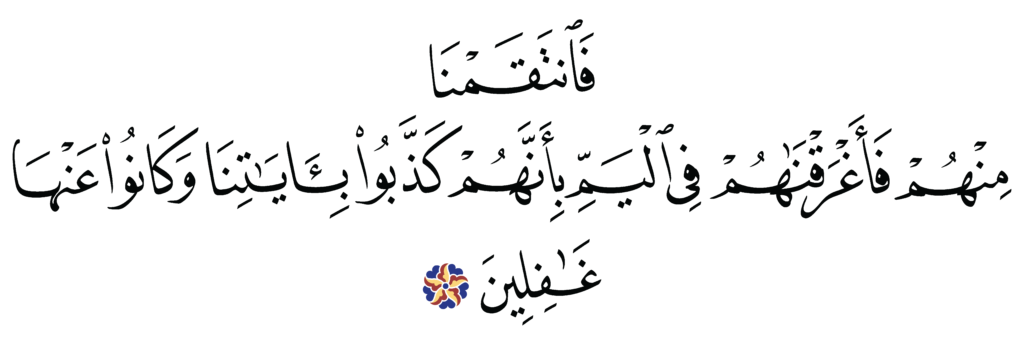 فَٱنتَقَمْنَا
مِنْهُمْ فَأَغْرَقْنَٰهُمْ فِى ٱلْيَمِّ بِأَنَّهُمْ كَذَّبُوا۟ بِـَٔايَٰتِنَا وَكَانُوا۟ عَنْهَا
غَٰفِلِينَ